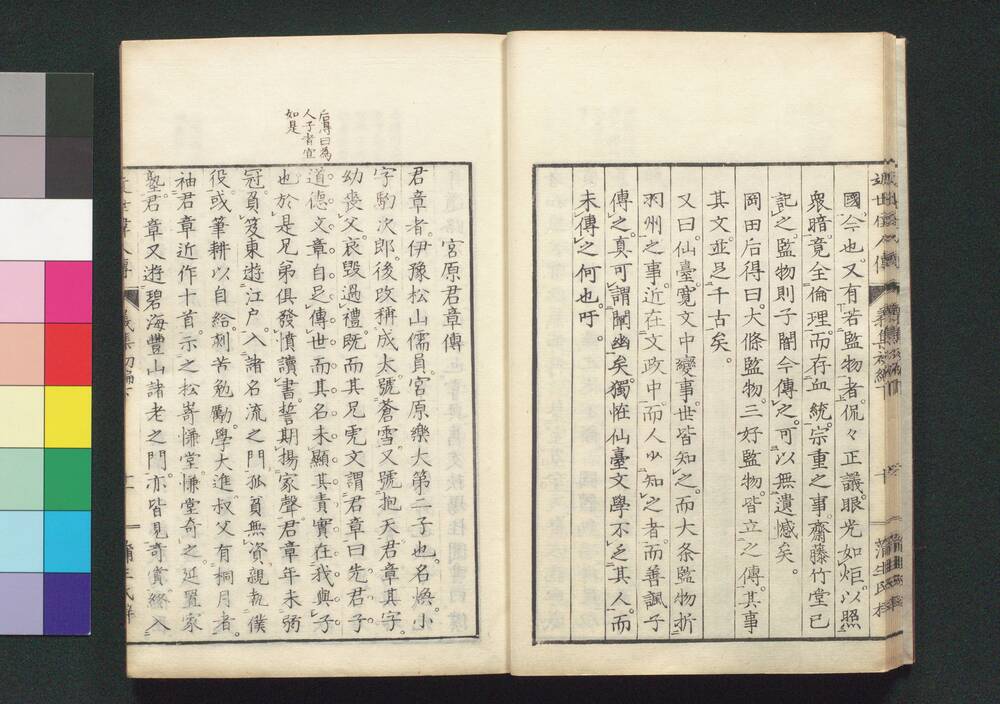 國今也又有若監物者侃々正議眼光如炬以照
衆暗竟全倫理而存血統宗重之事齋藤竹堂已
記之監物則子闇今傳之可以無遺憾矣
岡田后得曰大條監物三好監物皆立之傳其事
其文並足千古矣
又曰仙臺寛文中變事世皆知之而大条監物折
羽州之事近在文政中而人少知之者而善諷子
傳之真可謂闡幽矣獨怪仙臺文學不乏其人而
未傳之何也吁
后得曰為
人子者宜
如是
宮原君章傳
君章者伊豫松山儒員宮原樂大第二子也名煥小
字駒次郎後改稱成太號蒼雪又號抱天君章其字
幼喪父哀毀過禮既而其兄虎文謂君章曰先君子
道德文章自足傳世而其名未顯其責實在我與子
也於是兄弟俱發憤讀書誓期揚家聲君章年未弱
冠負笈東遊江戸入諸名流之門孤貧無資親執僕
役或筆耕以自給刻苦勉勵學大進叔父有桐月者
袖君章近作十首示之松嵜慊堂慊堂奇之延置家
塾君章又遊碧海豐山諸老之門亦皆見奇賞終入